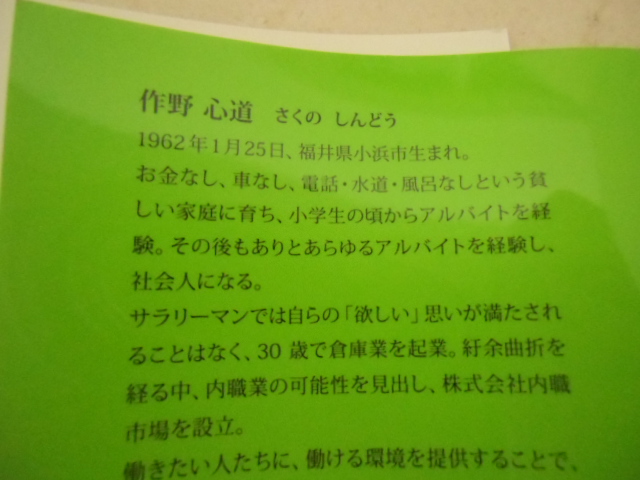 作野 心道　さくの しんどう
1962年1月25日、福井県小浜市生まれ。
お金なし、車なし、電話・水道・風呂なしという貧
しい家庭に育ち、小学生の頃からアルバイトを経
験。その後もありとあらゆるアルバイトを経験し、
社会人になる。
サラリーマンでは自らの「欲しい」思いが満たされ
ることはなく、30 歳で倉庫業を起業。紆余曲折を
経る中、内職業の可能性を見出し、株式会社内職
市場を設立。
働きたい人たちに、働ける環境を提供することで、